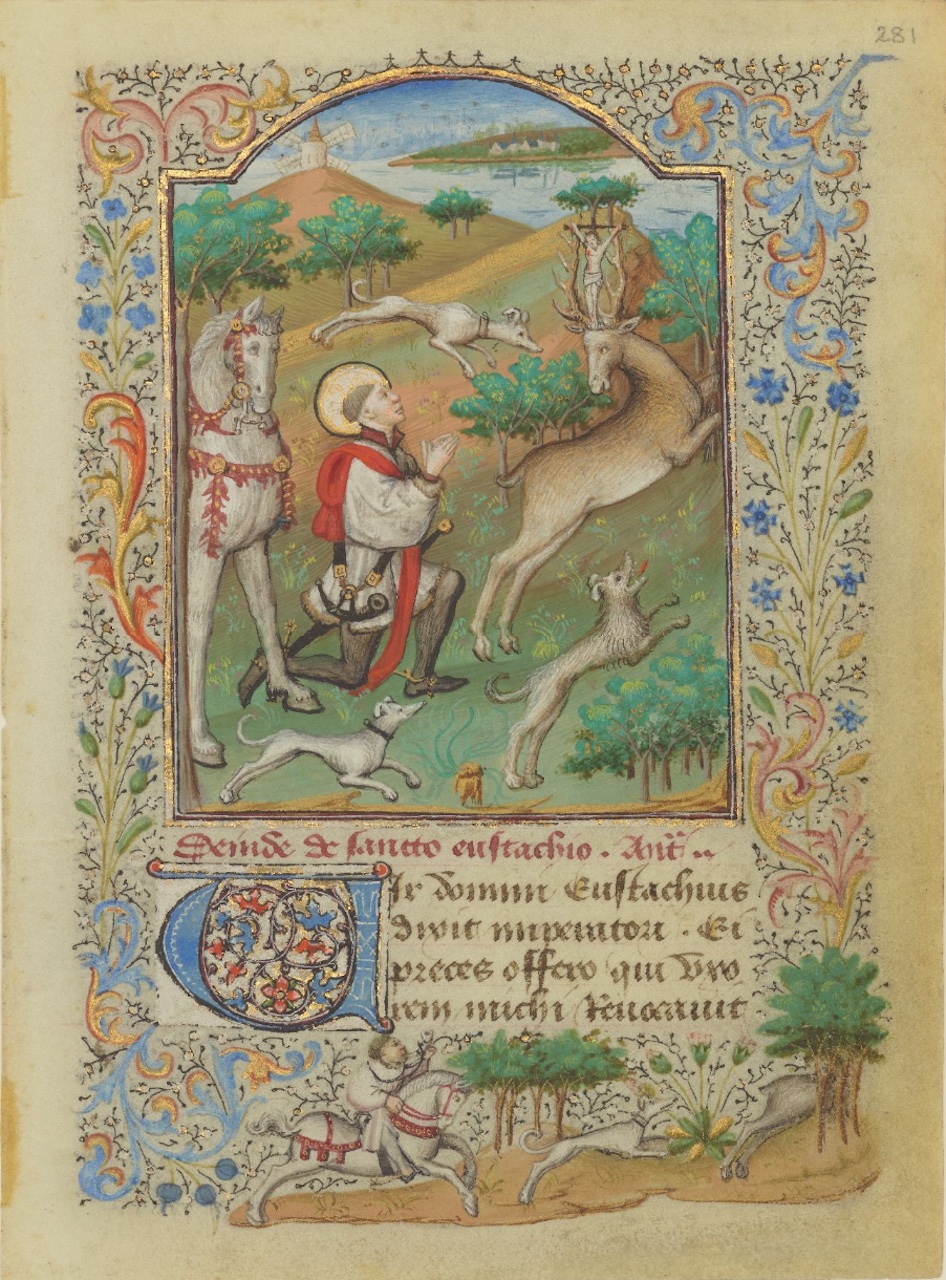 281
Deinde de sancto eustachio . Añt ..
Vir domini Eustachius
dixit imperatori . Ei
preces offero qui vxo
rem michi reuocauit